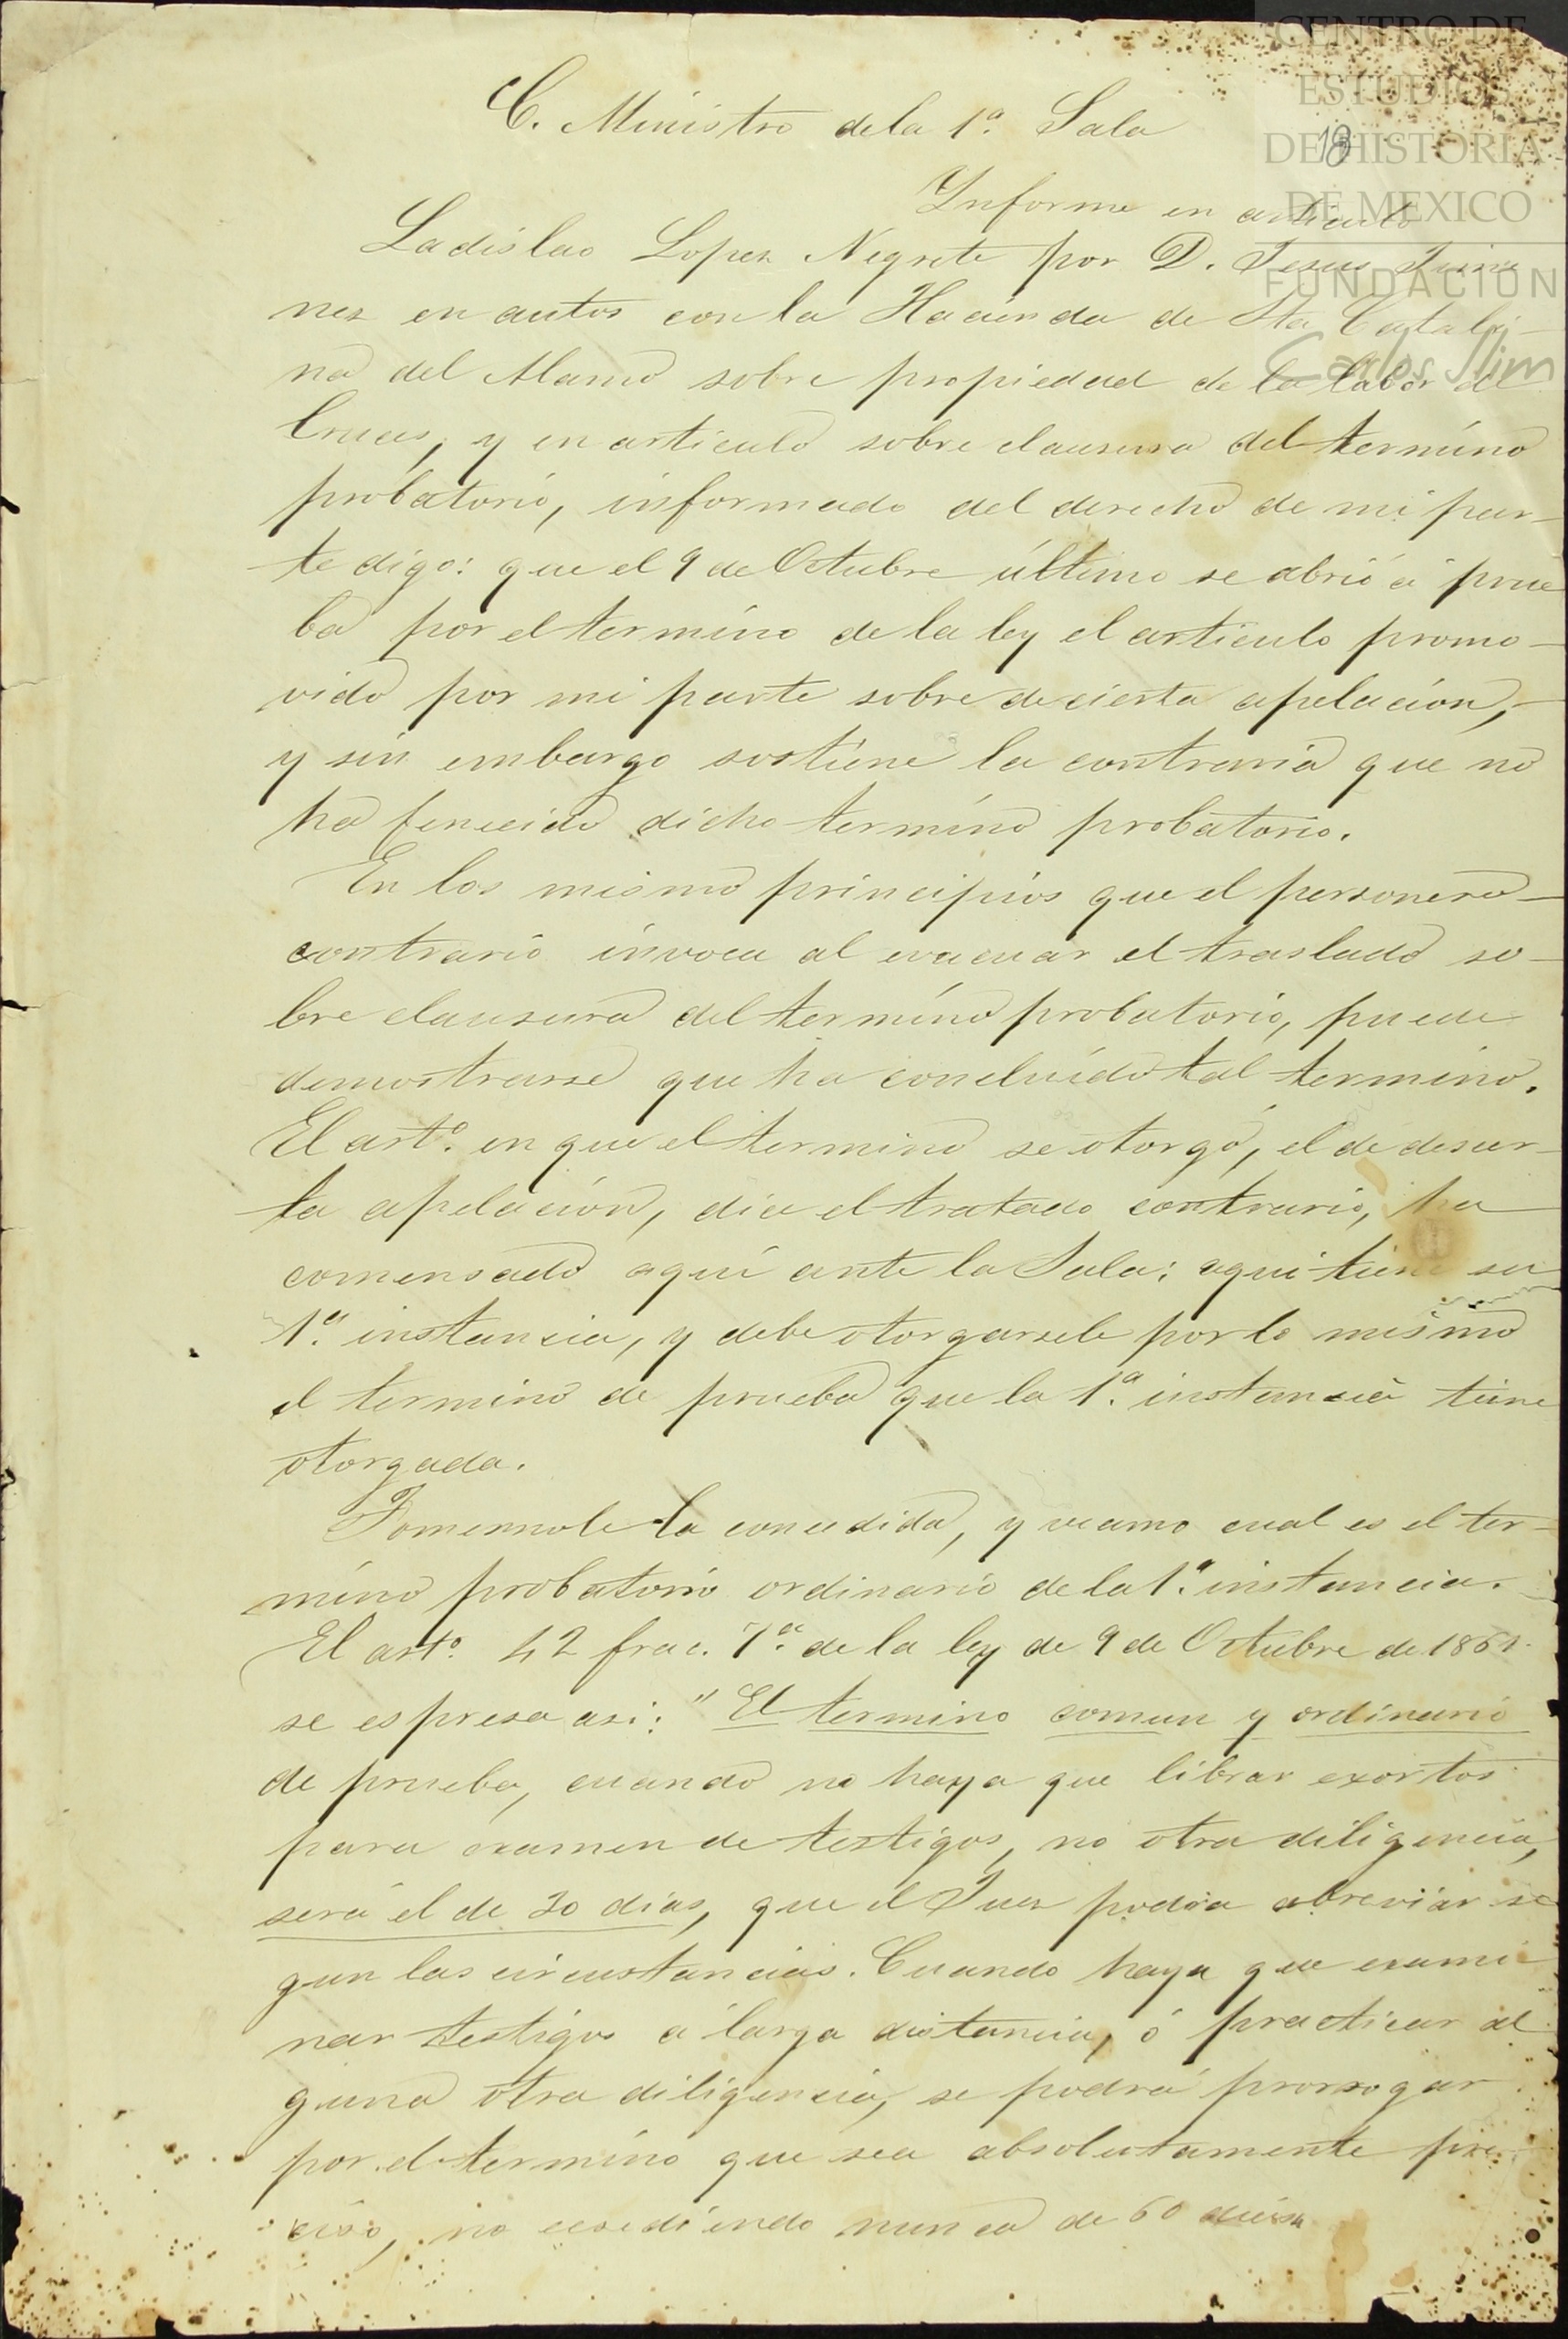 CENTRO DE
ESTUDIOS
DE HISTORIA
DE MEXICO
FUNDACION
Carlos Slim
18
C. Ministro dela 1ª. Sala
Informe en articulo
Ladislao Lopez Negrete por D. Jesus Jime
nez en autos con la Hacienda de Sta Catali-
na del Alamo sobre propiedad de la labor de
Cruces, y en articulo sobre clausura del termino
probatorio, informado del derecho de mi par-
te digo: que el 9 de Octubre último se abrió á prue
ba por el termino de la ley el articulo promo-
vido por mi parte sobre decierta apelacion,-
y sin embargo sostiene la contraria que no
ha fenecido dicho termino probatorio.
En los mismo principios que el personero-
contrario invoca al evacuar el traslado so-
bre clausura del termino probatorio, puede
demostrarse que ha concluido tal termino.
El artº. en que el termino se otorgó, el de decier-
ta apelacion, dice el tratado contrario, ha
comensado aquí ante la Sala; aqui tiene su
1ª. instancia, y debe otorgarsele por lo mismo
el termino de prueba que la 1ª. instancia tiene
otorgada.
Tomemnole la concedida, y veamo cual es el ter-
mino probatorio ordinario de la 1ª. instancia.
El artº. 42 frac. 7ª. de la ley de 9 de Octubre de 1861.
se espresa asi: "El termino comun y ordinario
de prueba, cuando no haya que librar exortos
para examen de testigos, no otra diligencia,
será el de 30 dias, que el Juez podra abreviar se
gun las circustancias. Cuando haya que exami
nar testigos a larga distancia, ó practicar al
guna otra diligencia, se podrá prorrogar
por el termino que sea absolutamente pre
ciso, no ecsediendo nunca de 60 dias